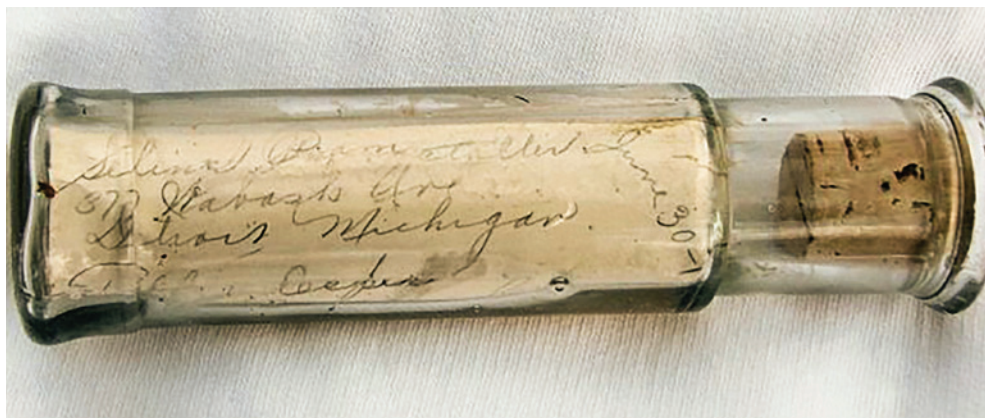 Selina Pramstaller June 30-1
Wabash Ave
Detroit Michigan.
Esper